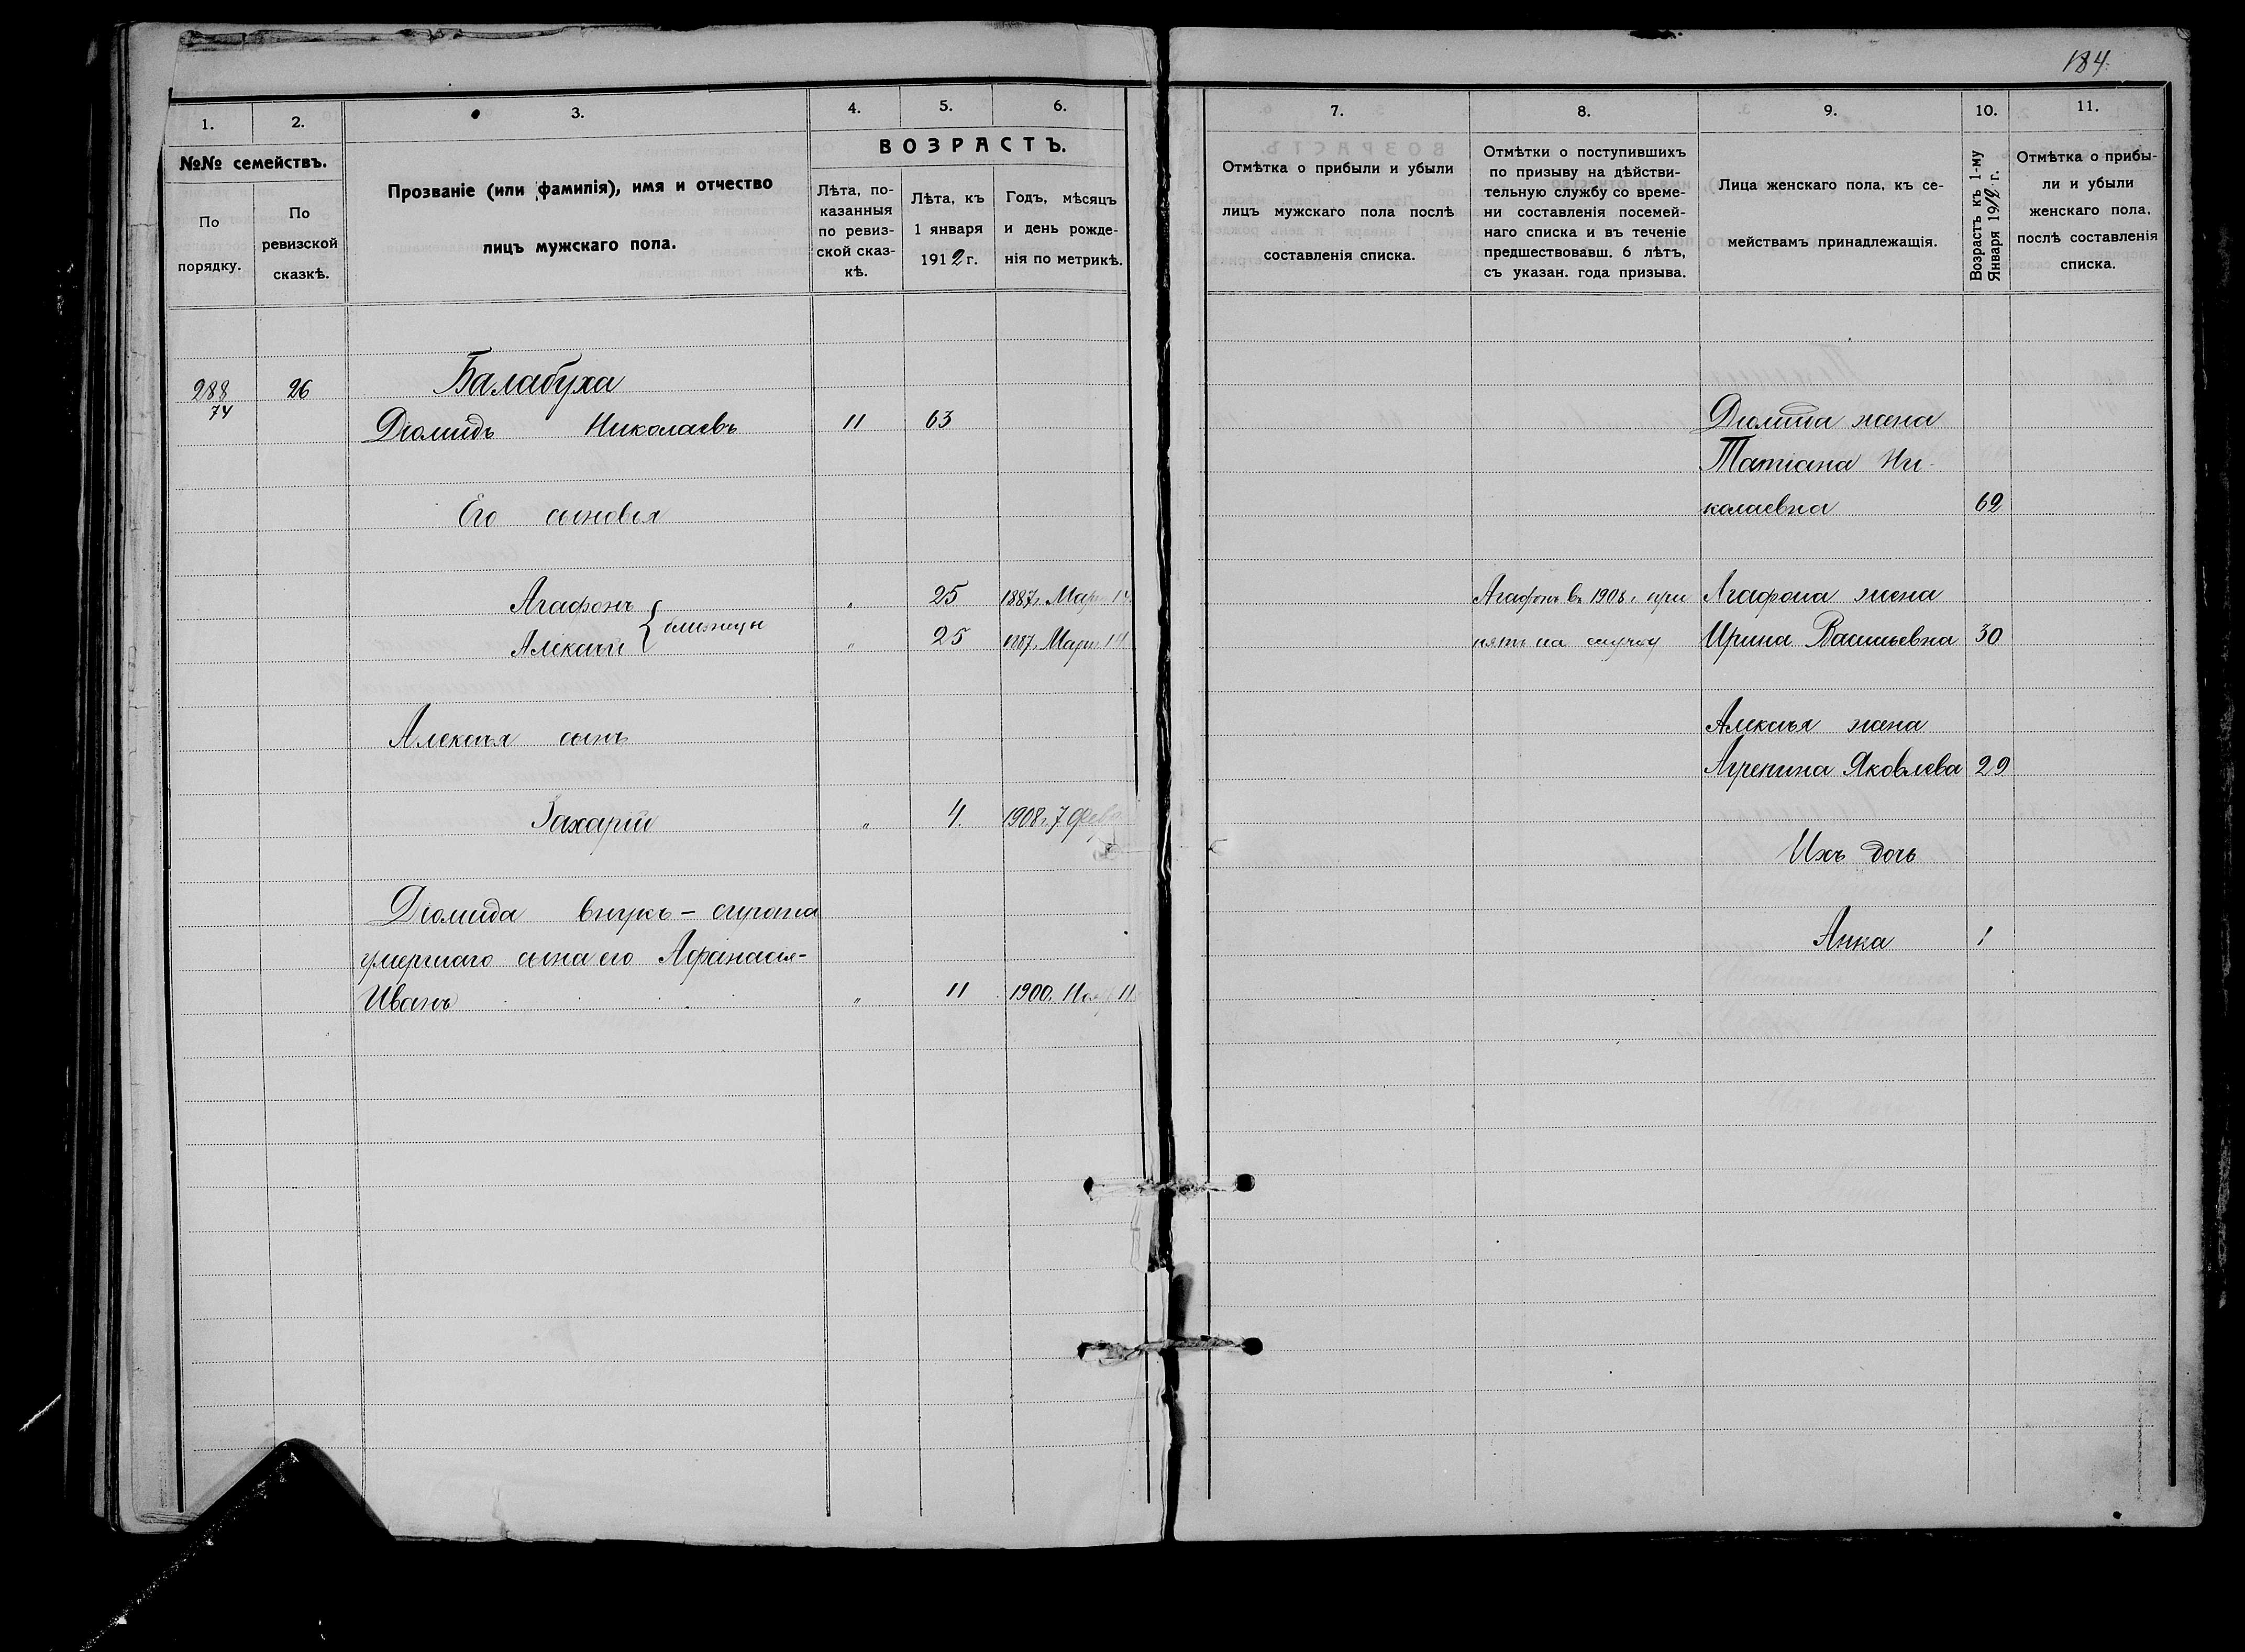 184.
1. 2. 3. 4. 5. 6.
№№ семействъ.
По порядку.
По ревизской сказкѣ.
Прозваніе (или фамилія), имя и отчество
лицъ мужскаго пола.
ВОЗРАСТЪ.
Лѣта, по-
казанныя
по ревиз-
ской сказ-
кѣ.
Лѣта, къ
1 января
1912 г.
Годъ, мѣсяцъ
и день рожде-
нія по метрикѣ.
288 26 Балабуха
74
Діомидъ Николаевъ 11 63
Его сыновья
Агафонъ " 25 1887г. Мар
близнецы
Алексѣй " 25 Мар
Алексѣя сынъ
Захарій " 4. 1908г. 7 Фев
Діомида внукъ - сирота
умершаго сына его Афанасія-
Иванъ " 11 1900г.
7. 8. 9. 10. 11.
Отмѣтка о прибыли и убыли
лицъ мужскаго пола послѣ
составленія списка.
Отмѣтки о поступившихъ
по призыву на дѣйстви-
тельную службу со време-
ни составленія посемей-
наго списка и въ теченіе
предшествовавш. 6 лѣтъ,
съ указан. года призыва.
Лица женскаго пола, къ се-
мействамъ принадлежащія.
Возрастъ къ 1-му
Января 1912 г.
Отмѣтка о прибы-
ли и убыли
женскаго пола,
послѣ составленія
списка.
Діомида жена
Татіана Ни-
колаевна 62
Агафонъ въ 1908г. при
нятъ на службу
Агафона жена
Ирина Васильевна 30
Алексѣя жена
Агрепина Яковлева 29
Ихъ дочь
Анна 1